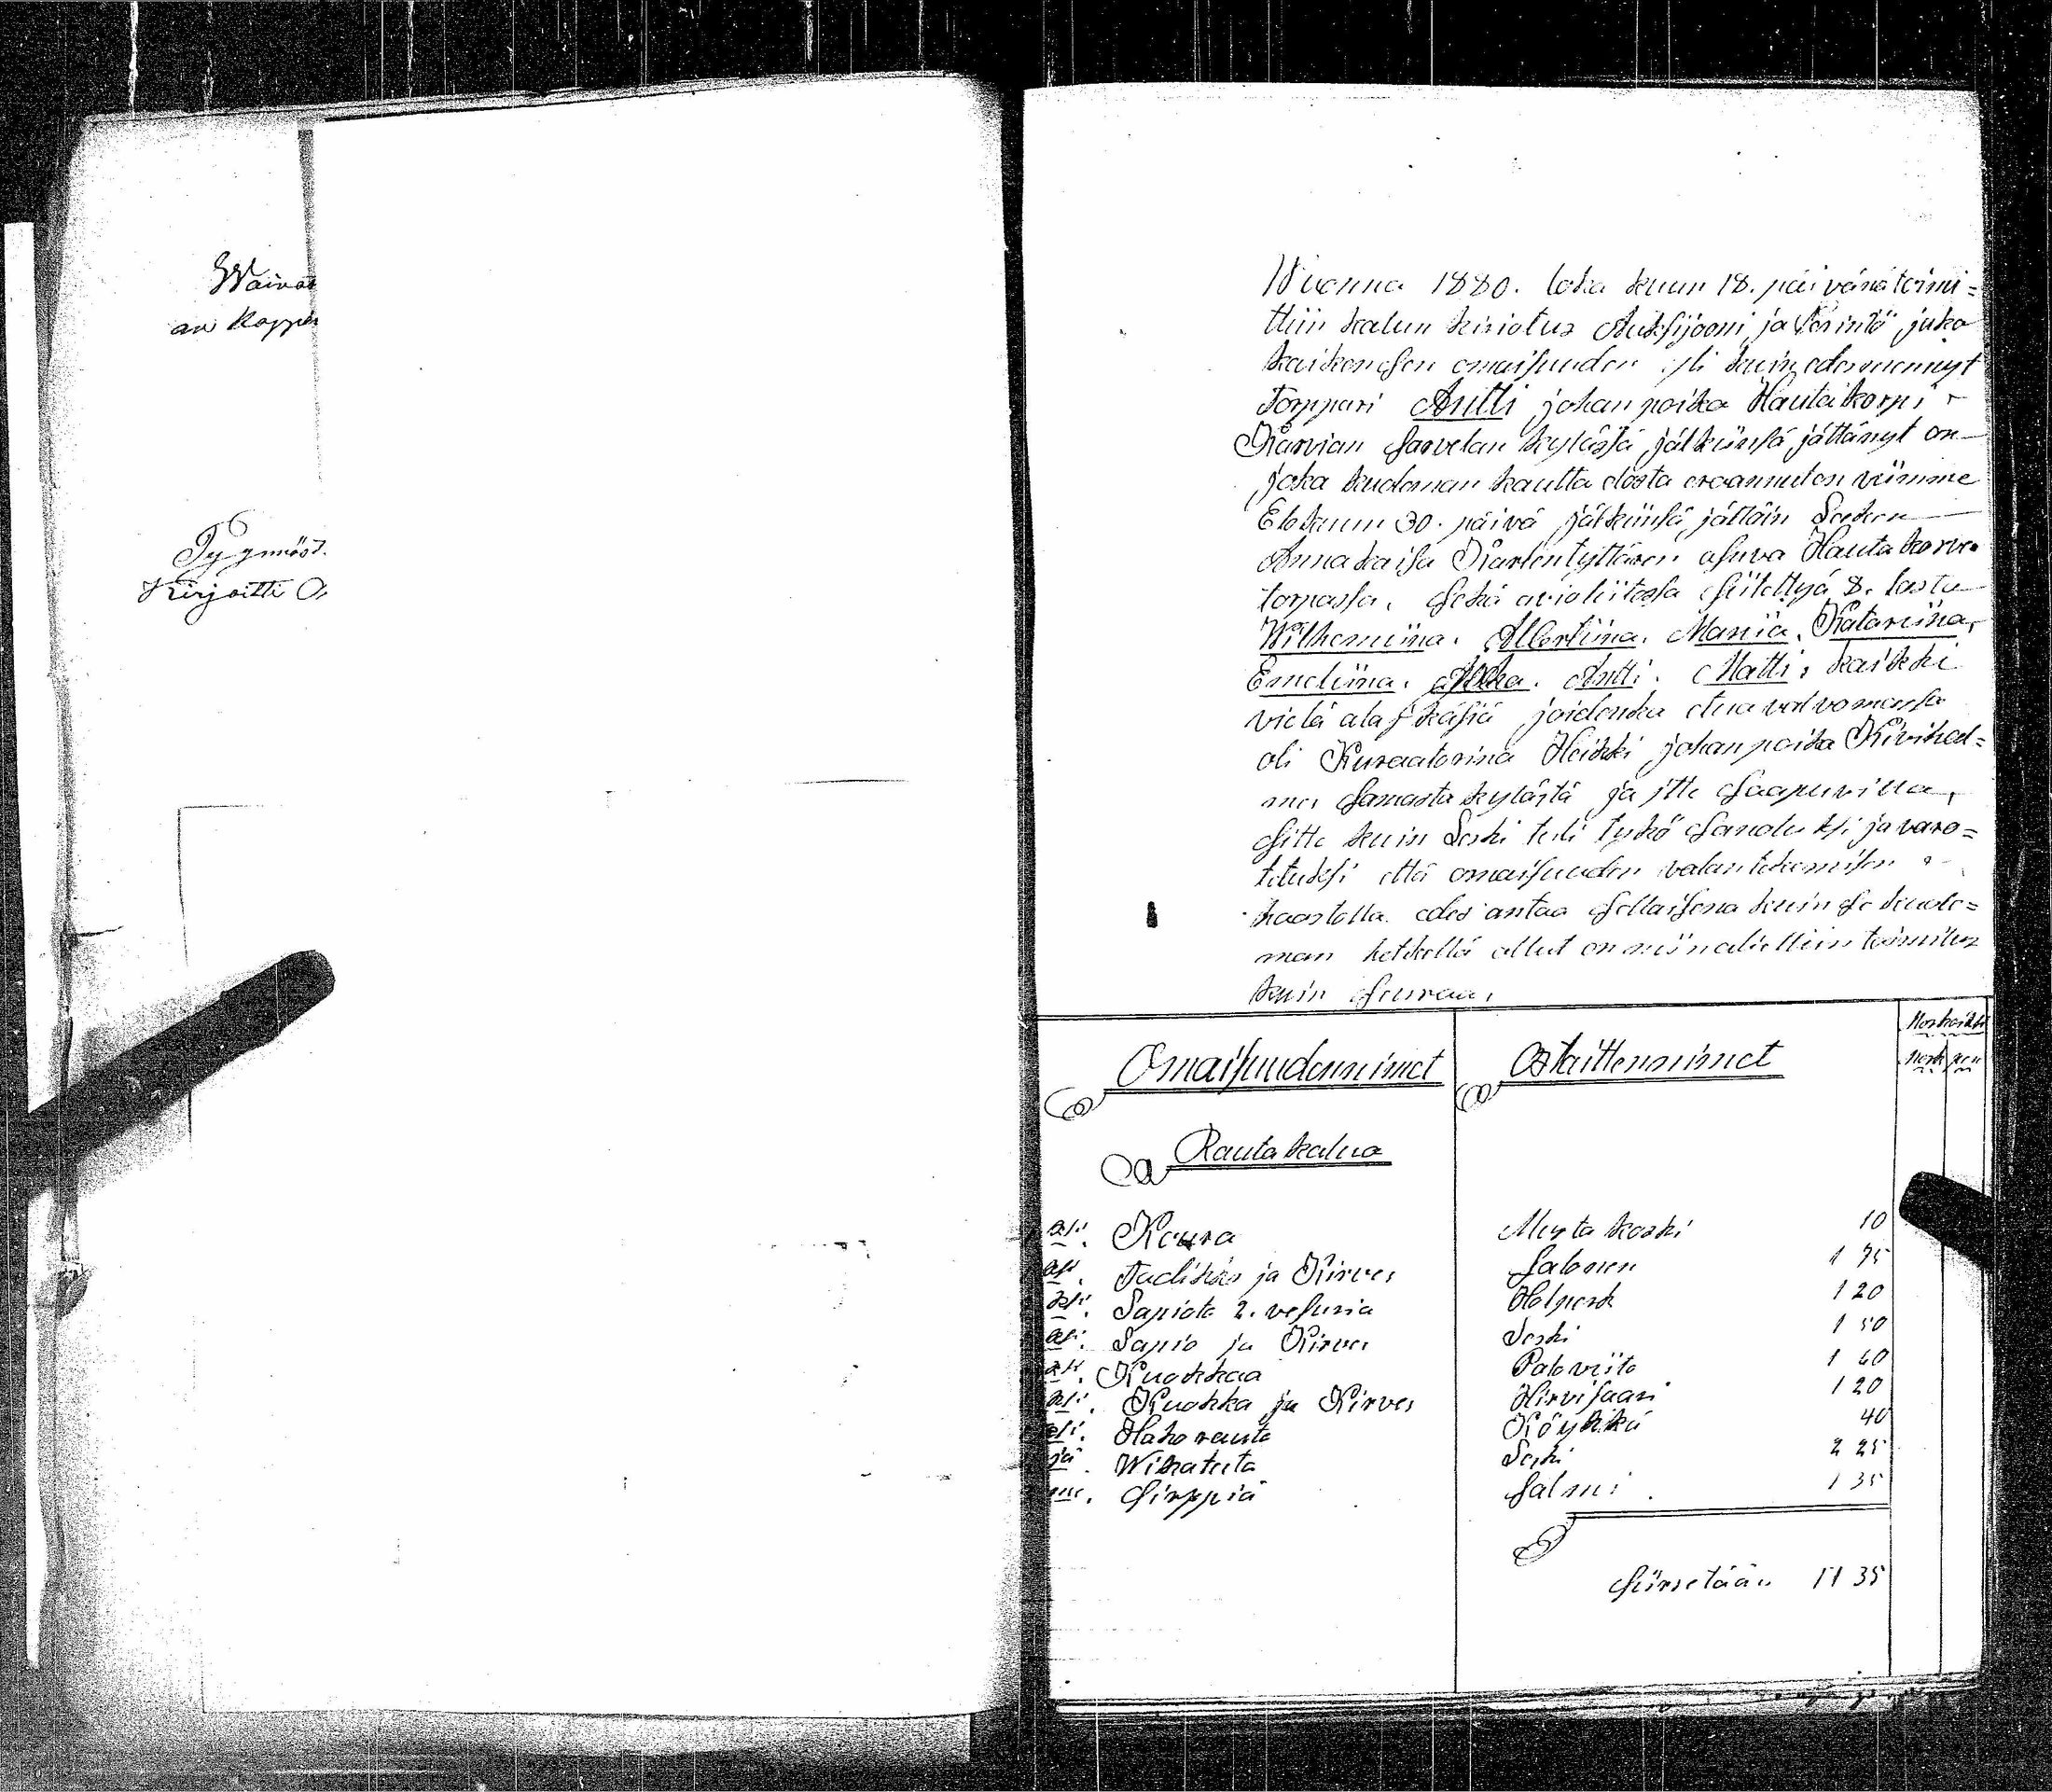 Waivas
Kirjoitti
Wuonna 1880. loka kuun 18. päivänä toimi=
ttiin kalun kirjotus Auksijooni ja Perintö juko
kaikensen omaisuuden yli kuin edesmennyt
Torppari Antti johan poika Hautakorpi
Karvian Sarvelan kylässä jälkiinsä jättänyt on
joka kuoleman kautta elosta eroannut on viimme
Elokuun 30. päivä jälkiinsä jättäin Lesken
Anna kaisa Kaarlentyttären asuva Hautakorven
torpassa, sekä avioliitossa siitettyä 8. lasta
Wilhemiina. Albertiina. Mariia. Katariina,
Emeliina. Antti. Matti, kaikki
vielä ala ikäsiä joidenka etua valvomassa
oli Kuraatorina Heikki johan poika Kivihal=
me, samasta kylästä ja itte saapuvilla,
sitte kuin Leski tuli tykö sanotuksi ja varo=
tetuksi että omaisuuden valantekemisen
haastolla edes antaa sellaisena kuin se kuole=
man hetkellä ollut on niin alettiin toimitus
kuin seuraa,
Omaisuudennimet Ostaittennimet
mark pen
Rautakalua
Koura Mustakoski 10
ja Kirves Salonen 1 75
Lapiota 2. vesuria 1 20
Lapio ja Kirves Leski 1 50
Kuokkaa Paloviita 1 60
Kuokka ja Kirves Hirvisaari 1 20
Hako rauta Röyskkä 40
Wikateta Leski 2 25
Sirppiä Salmi 1 35
Siirretään 11 35